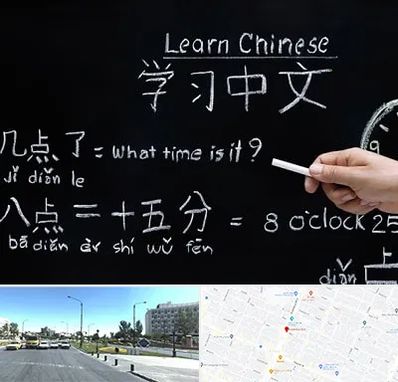 Learn Chinese
学习中文
几点了 = What time is it?
Jǐ diǎn le
八点二十五分 = 8 o'clock 25
bā diǎn èr shí wǔ fēn
9
上
diǎn